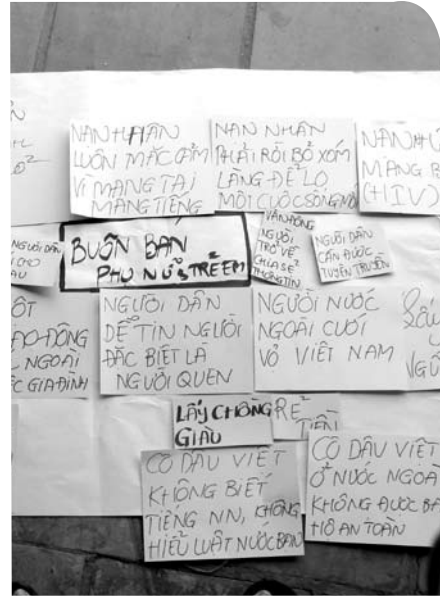 NẠN NHÂN
LUÔN MẶC CẢM
VÌ MANG TAI
MANG TIẾNG
NẠN NHÂN
PHẢI RỜI BỎ XÓM
LÀNG ĐỂ LO
MỘT CUỘC SỐNG MỚI
NẠN NH
MANG B
(HIV)
NGƯỜI DÂN
BUÔN BÁN
PHỤ NỮ & TRẺ EM
VẬN ĐỘNG
NGƯỜI
TRỞ VỀ
CHIA SẺ
THÔNG TIN
NGƯỜI DÂN
CẦN ĐƯỢC
TUYÊN TRUYỀN
NGOÀI
GIA ĐÌNH
NGƯỜI DÂN
DỄ TIN NGƯỜI
ĐẶC BIỆT LÀ
NGƯỜI QUEN
NGƯỜI NƯỚC
NGOÀI CƯỚI
VỢ VIỆT NAM
LẤY CHỒNG RẺ
GIÀU TIỀN
CÔ DÂU VIỆT
KHÔNG BIẾT
TIẾNG NN, KHÔNG
HIỂU LUẬT NƯỚC BẠN
CÔ DÂU VIỆT
Ở NƯỚC NGOÀ
KHÔNG ĐƯỢC BẢ
HỘ AN TOÀN